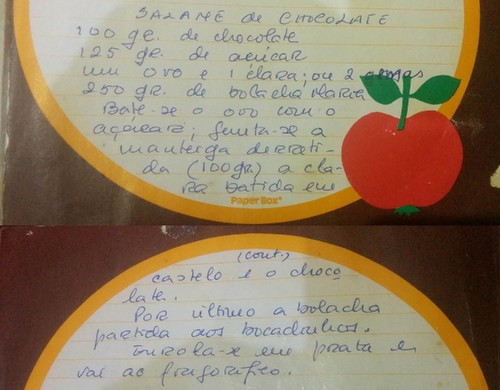 SALAME de CHOCOLATE
100 gr. de chocolate
125 gr. de açúcar
um ovo e 1 clara; ou 2 gemas
250 gr. de bolacha Maria
Bate-se o ovo com o
açúcar; junta-se a
manteiga derreti-
da (100gr) a cla-
ra batida em
Paper Box®
(cont.)
castelo e o choco
late.
Por último a bolacha
partida aos bocadinhos.
Enrola-se em prata e
vai ao frigorífico.